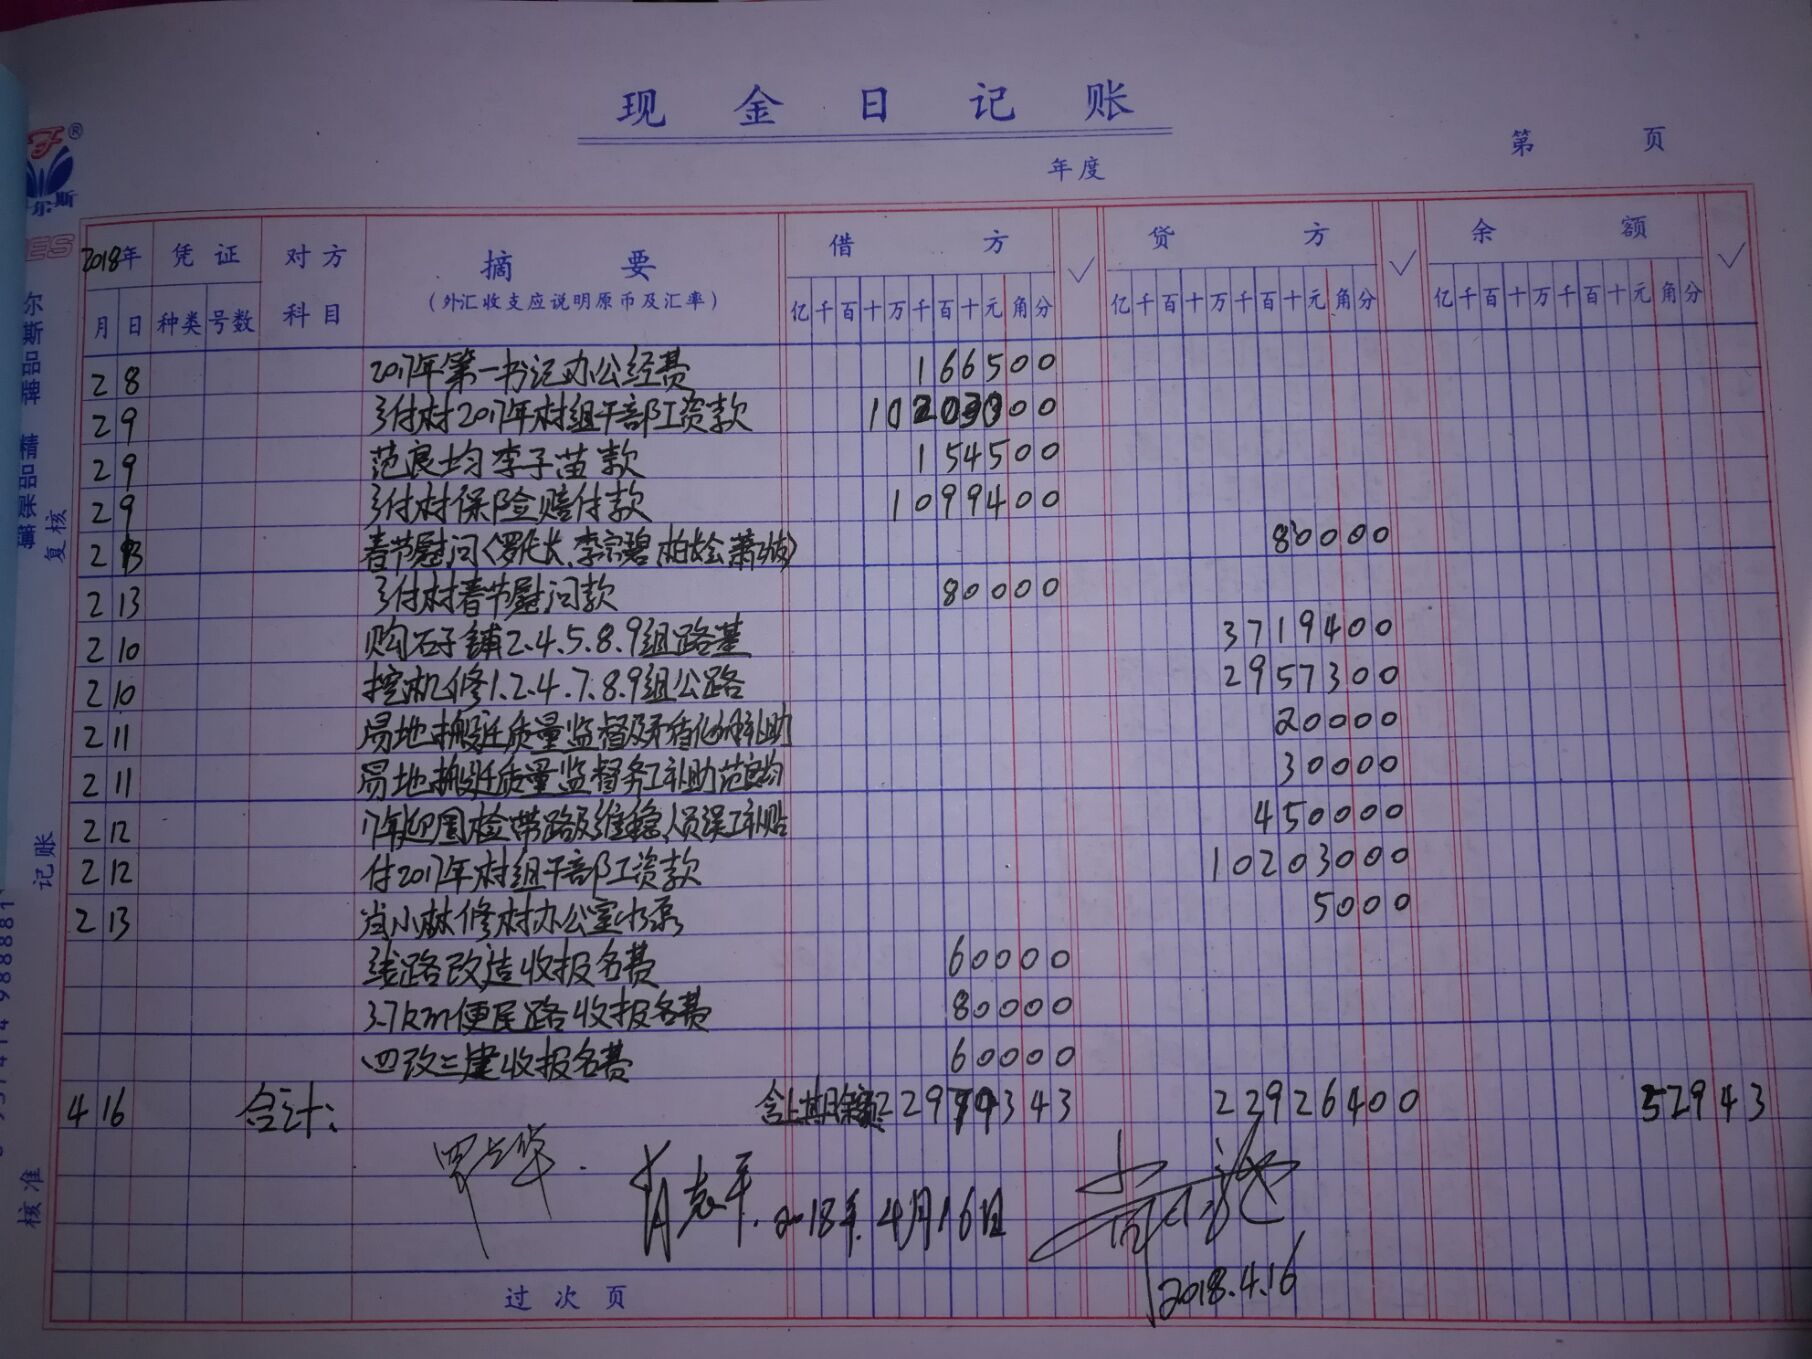 现金日记账
年度
第 页
2018年 凭证 对方 摘要 借方 ✓ 贷方 ✓ 余额 ✓
(外汇收支应说明原币及汇率)
月 日 种类 号数 科目 亿千百十万千百十元角分 亿千百十万千百十元角分 亿千百十万千百十元角分
2 8 2017年第一书记办公经费 166500
2 9 付村2017年村组干部工资款 10203000
2 9 范良均李子苗款 154500
2 9 付村保险赔付款 1099400
2 13 春节慰问 80000
2 13 付村春节慰问款 80000
2 10 购石子铺2.4.5.8.9组路基 3719400
2 10 挖机修1.2.4.7.8.9组公路 2957300
2 11 易地搬迁质量监督及 补助 20000
2 11 易地搬迁质量监督务工补助范良均 30000
2 12 17年迎国检带路及维稳人员误工补贴 450000
2 12 付2017年村组干部工资款 10203000
2 13 小林修村办公室水泵 5000
线路改造收报名费 60000
3.7km便民路收报名费 80000
四改三建收报名费 60000
4 16 合计: 含上期余额 22979343 22926400 52943
2018年4月16日
2018.4.16
过次页
尔斯
尔斯品牌 精品账簿
复核
记账
核准